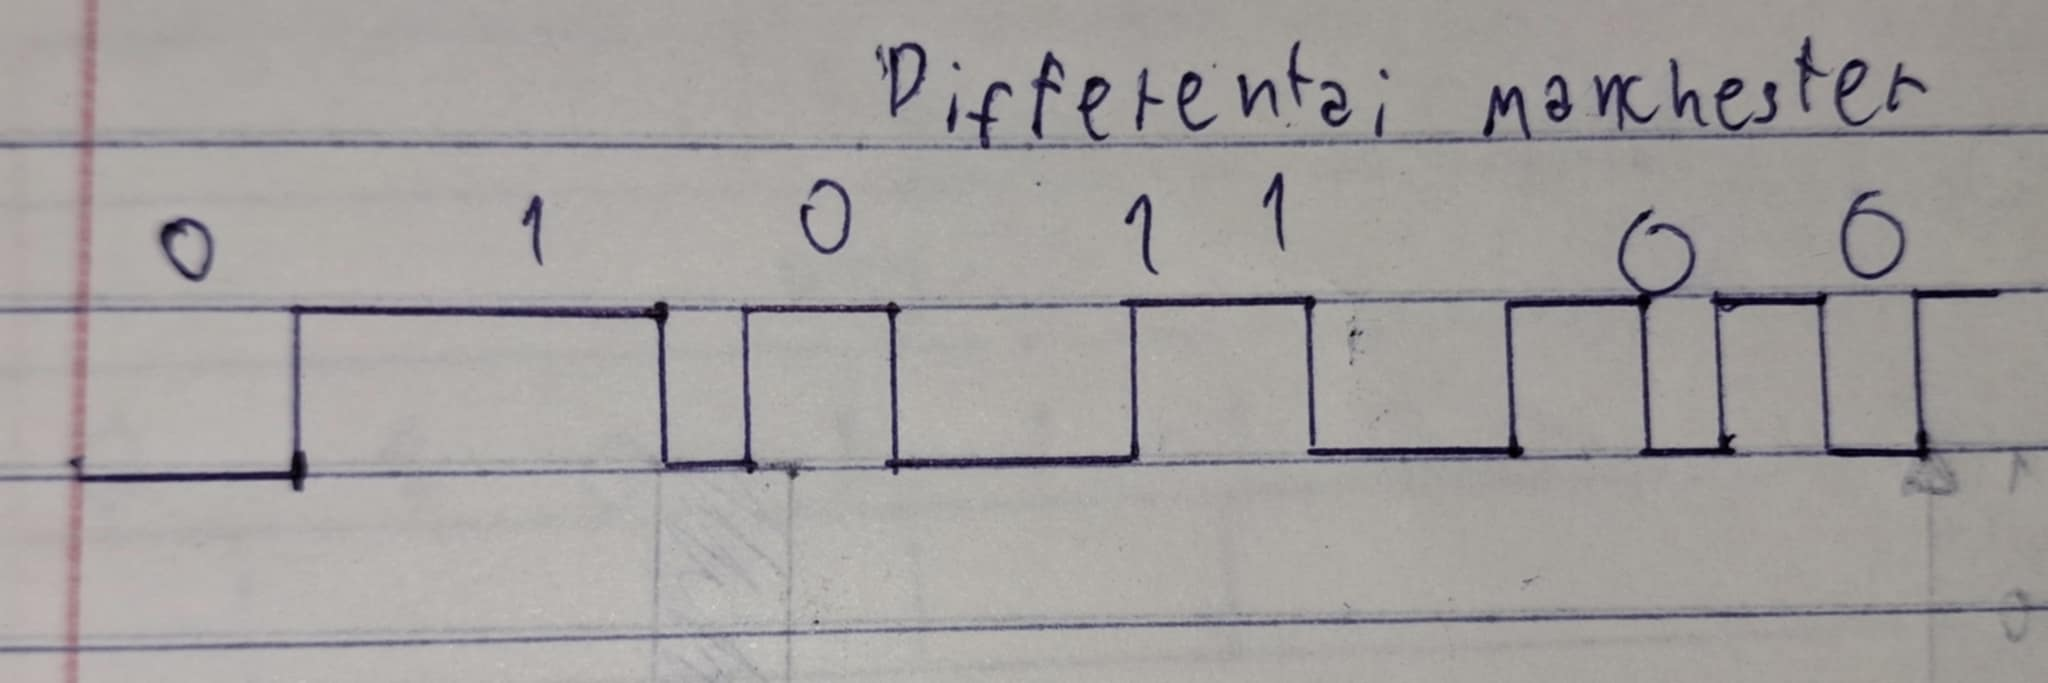 Differentai manchester
0 1 0 1 1 0 0